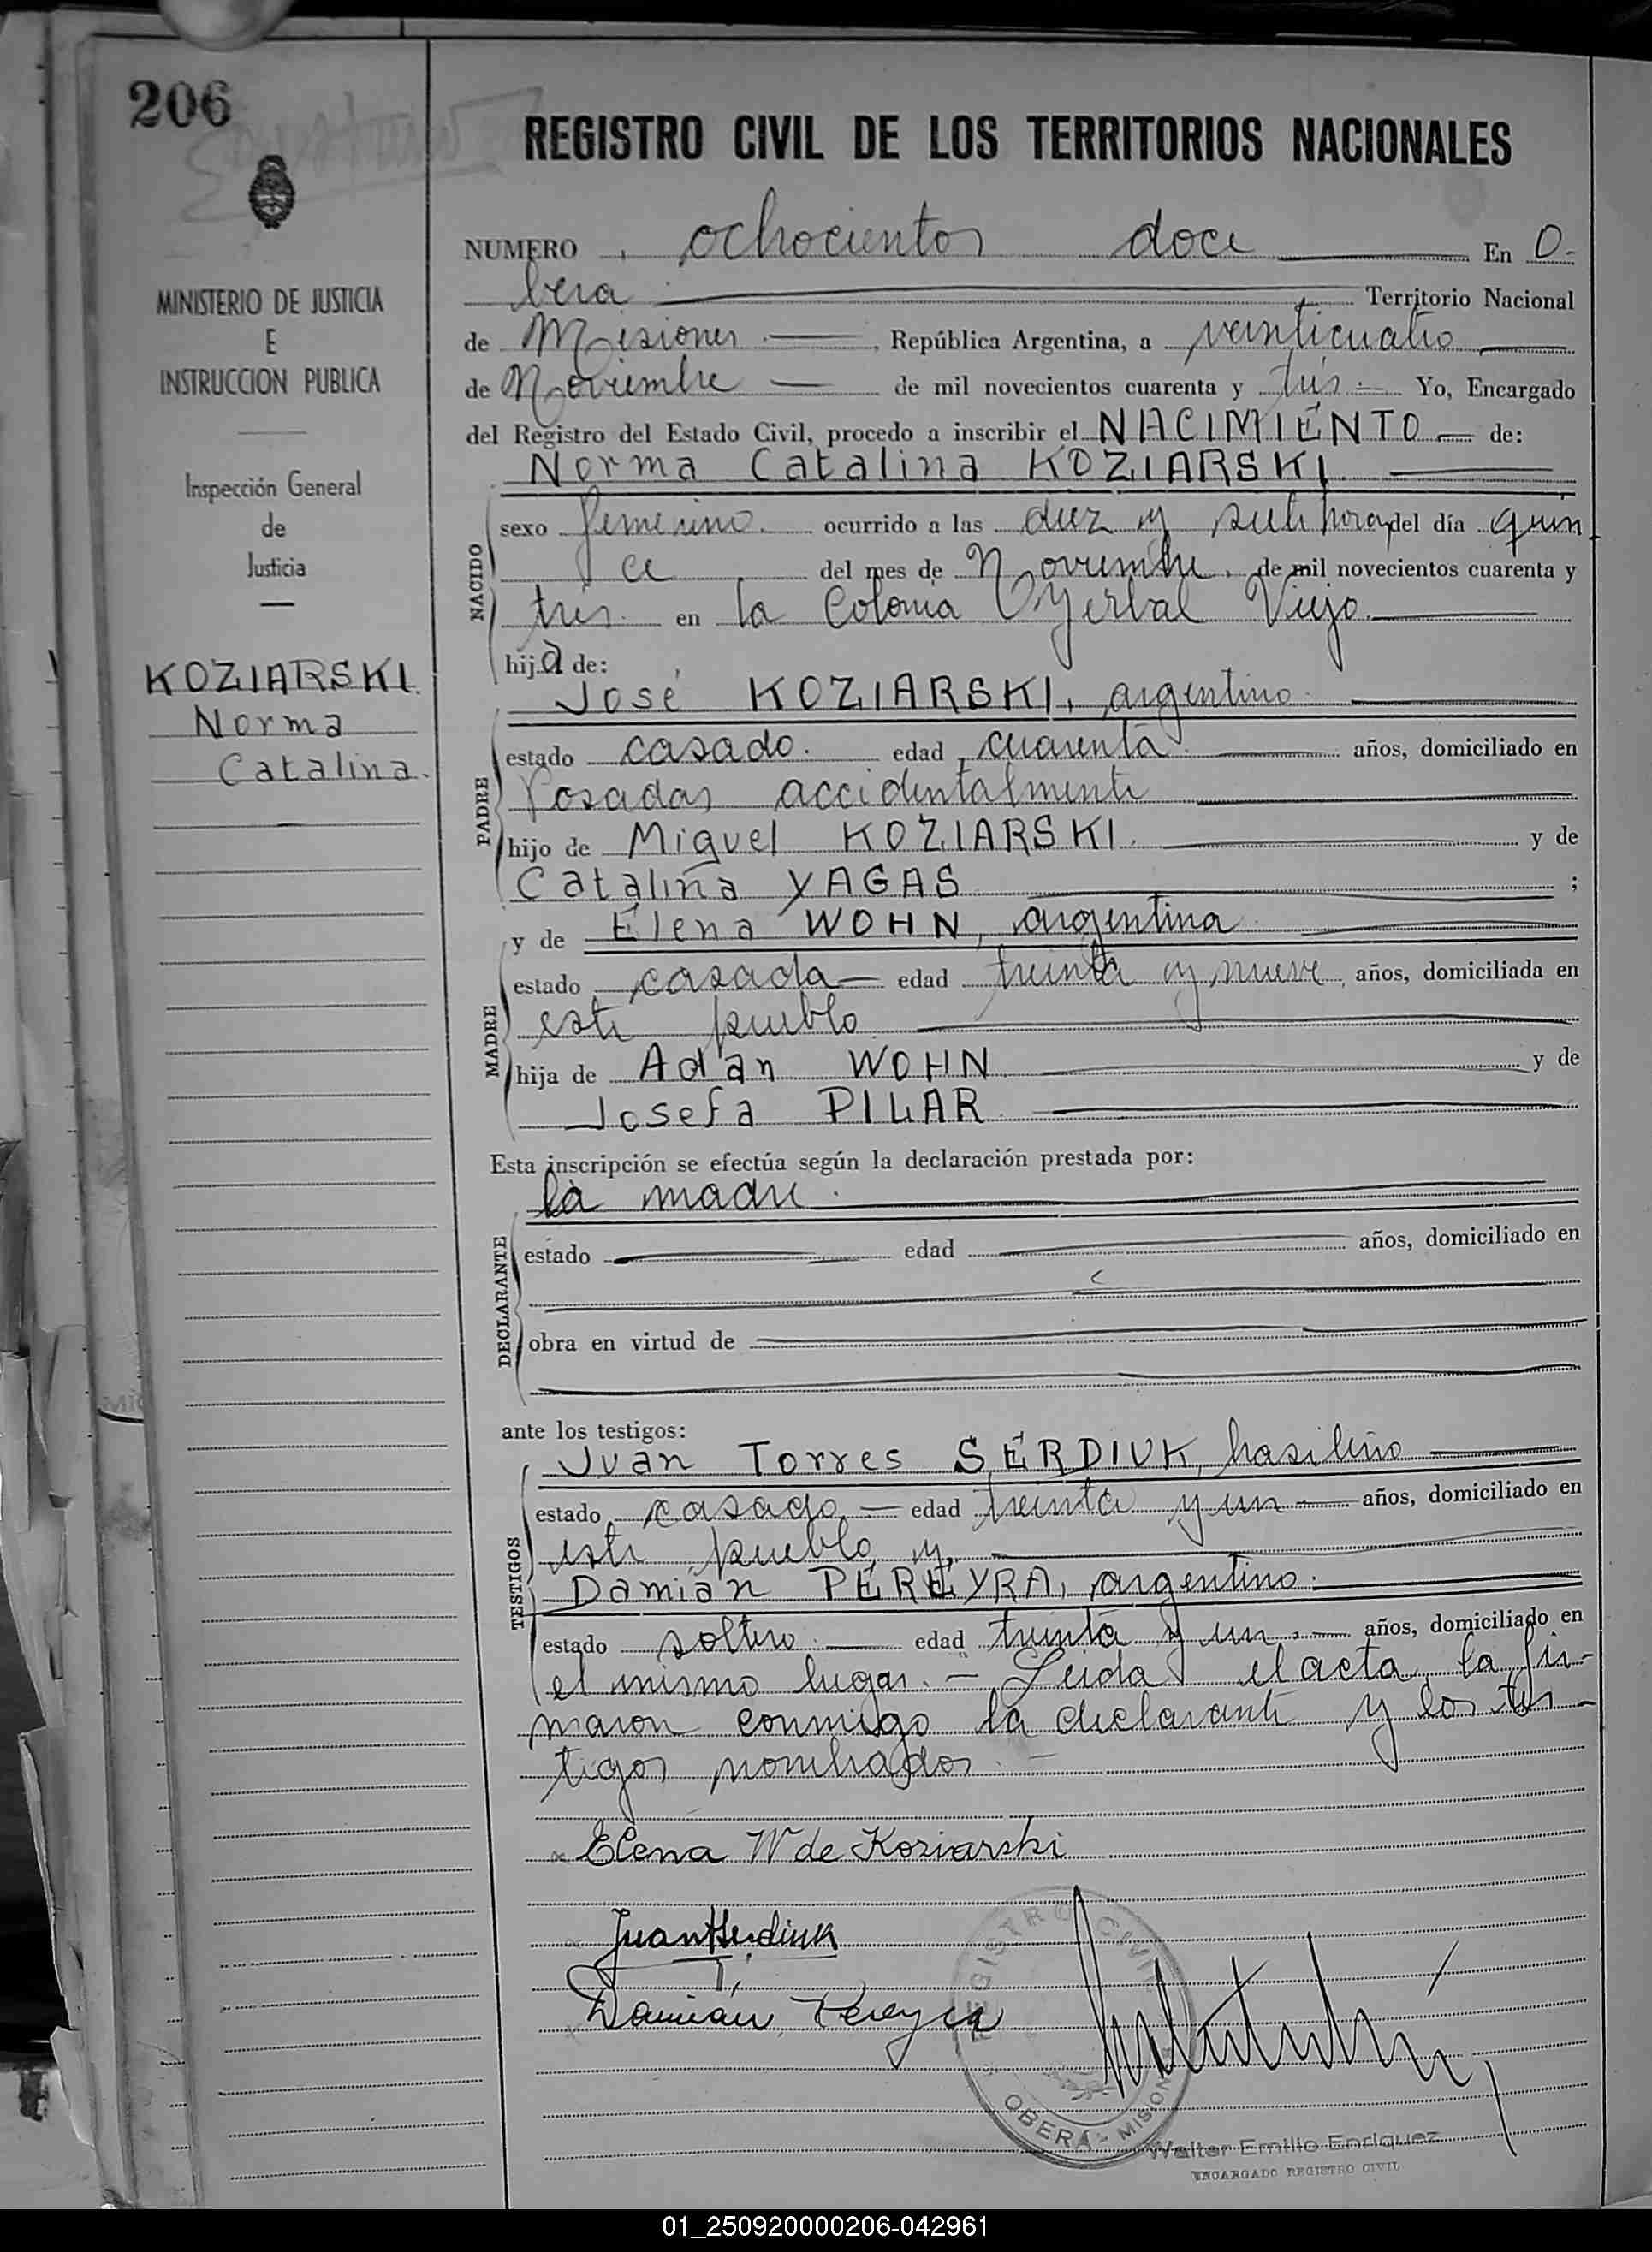 206
REGISTRO CIVIL DE LOS TERRITORIOS NACIONALES
MINISTERIO DE JUSTICIA
E
INSTRUCCION PUBLICA
Inspección General
de
Justicia
KOZIARSKI.
Norma
Catalina.
NUMERO ochocientos doce En O-
bera Territorio Nacional
de Misiones República Argentina, a veinticuatro
de Noviembre de mil novecientos cuarenta y tres Yo, Encargado
del Registro del Estado Civil, procedo a inscribir el NACIMIENTO de:
Norma Catalina KOZIARSKI
NACIDO
sexo femenino. ocurrido a las diez y siete horas del día quin
ce del mes de Noviembre, de mil novecientos cuarenta y
tres en la Colonia Yerbal Viejo.
hija de:
José KOZIARSKI, argentino
PADRE
estado casado. edad cuarenta años, domiciliado en
Posadas accidentalmente
hijo de Miguel KOZIARSKI. y de
Catalina YAGAS ;
y de Elena WOHN, argentina
MADRE
estado casada edad treinta y nueve años, domiciliada en
este pueblo
hija de Adan WOHN y de
Josefa PILAR
Esta inscripción se efectúa según la declaración prestada por:
la madre.
DECLARANTE
estado edad años, domiciliado en
obra en virtud de
ante los testigos:
Juan Torres SERDIUK, brasileño
TESTIGOS
estado casado edad treinta y un años, domiciliado en
este pueblo y,
Damián PEREYRA, argentino.
estado soltero. edad treinta y un. años, domiciliado en
el mismo lugar. – Leida el acta, la fir-
maron conmigo la declarante y los tes-
tigos nombrados. –
Elena W de Koziarski
Juan Serdiuk
T.
Damián Pereyra
REGISTRO CIVIL
OBERA - MISIONES
Walter Emilio Enriquez
ENCARGADO REGISTRO CIVIL
01_250920000206-042961